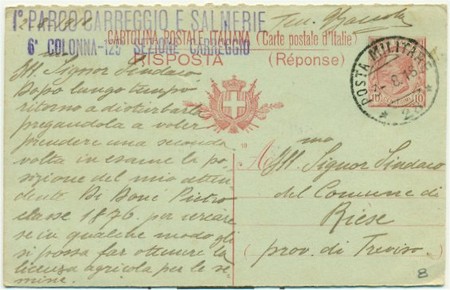 I° PARCO CARREGGIO E SALMERIE
6ª COLONNA-125ª SEZIONE CARREGGIO
CARTOLINA POSTALE ITALIANA (Carte postale d'Italie)
RISPOSTA (Réponse)
POSTA MILITARE
8.16
10
Ill. Signor Sindaco
Dopo lungo tempo
ritorno a disturbarla
pregandola a voler
prendere una seconda
volta in esame la po
sizione del mio atten
dente Di Boné Pietro
classe 1876. per cercare
se in qualche modo gli
si possa far ottenere la
licenza agricola per le se
mine.
A Ill.mo Signor Sindaco
del Comune di
Riese
prov. di Treviso.
8